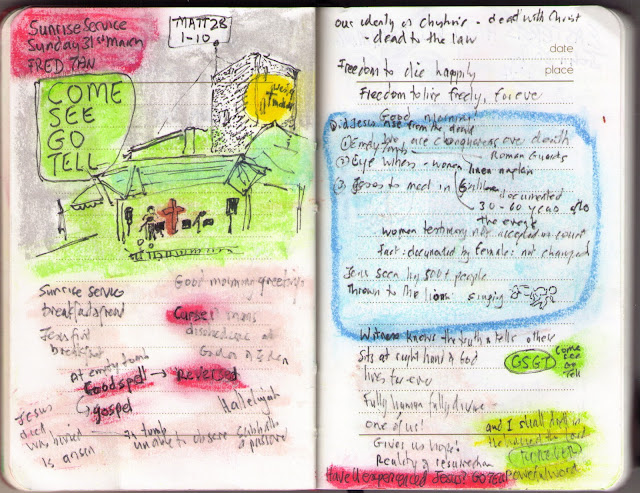 Sunrise Service
Sunday 31st March
FRED TAN
MATT 28
1-10
COME
SEE
GO
TELL
Sunrise service
breakfast
Jesus
breakfast
at empty tomb
Good spell → Reversed
gospel
Hallelujah
Jesus
died
was buried
Is arisen
tomb
unable to observe Sabbath
Good morning greetings
Curse
disobedience at
Garden of Eden
Our identity as - dead with Christ
- dead to the law
date
Freedom to die happily
place
Freedom to live freely, forever
Good morning
Did Jesus rise from the dead
We are conquerors over death
① Empty tomb
Roman Guards
② Eye Witness - women
linen
③ Jesus to meet in Galilee
documented
30-60 years after
the event
women testimony not accepted in court
fact: documented by female: not changed
Jesus seen by 500+ people
Thrown to the lions: singing
Witness knows the truth & tells others
Sits at right hand of God
GSGT
come
see
go
tell
lives for ever
Fully human fully divine
one of us!
and I shall dwell in
the house of the Lord
FOREVER
Gives us hope!
Reality of resurrection
Have U experienced Jesus? GO TELL
powerful word